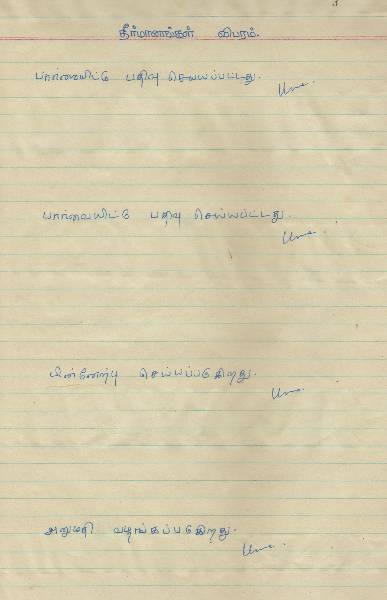 தீர்மானங்கள் விபரம்.
பார்வையிட்டு பதிவு செய்யப்பட்டது.
பார்வையிட்டு பதிவு செய்யப்பட்டது.
பின்னேற்பு செய்யப்படுகிறது.
அனுமதி வழங்கப்படுகிறது.